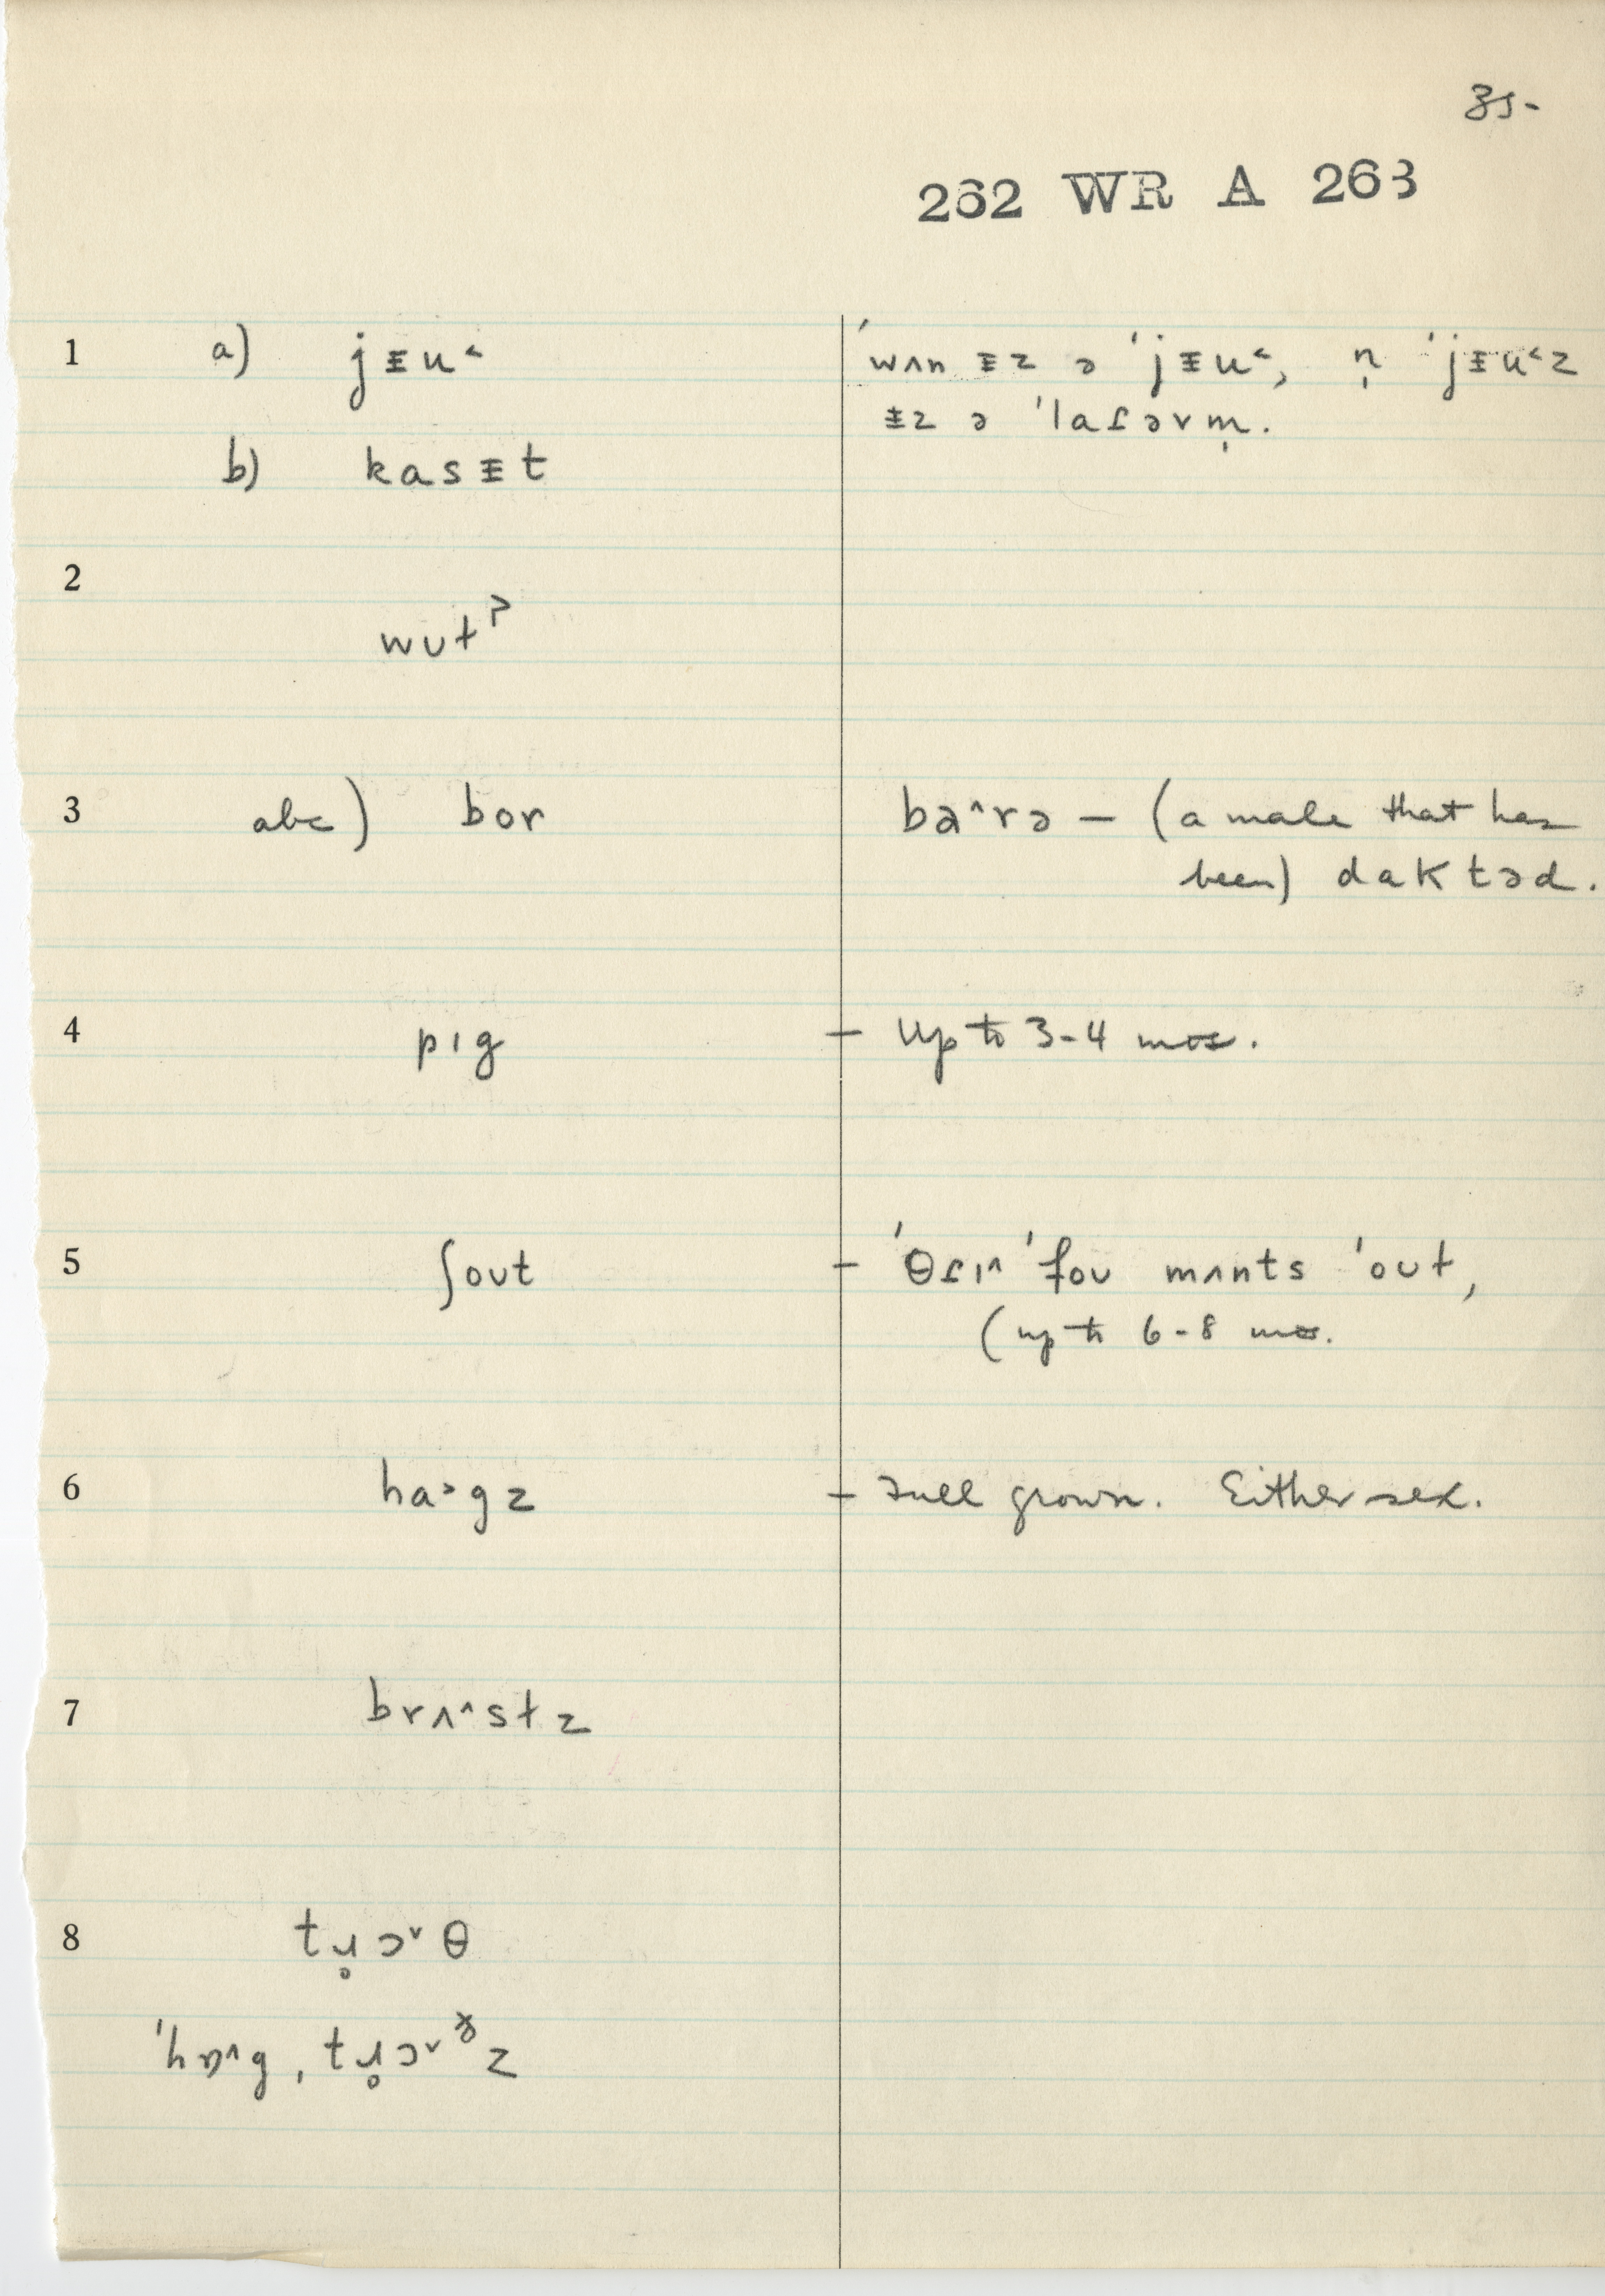 35-
262 WR A 263
1 a) jᵻu˂ ˈwʌn ᵻz ə ˈjᵻu˂, n̩ ˈjᵻu˂z
ᵻz ə ˈlaɾəvm̩.
b) kasᵻt
2
wut
3 abc) bor bə^rə – (a male that has
been) daktəd.
4 pıg – up to 3-4 mos.
5 ʃout – ˈθɾı^ ˈfou mʌnts ˈout,
(up to 6-8 mos.
6 ha˃gz – Full grown. Either sex.
7 brʌ^stz
8